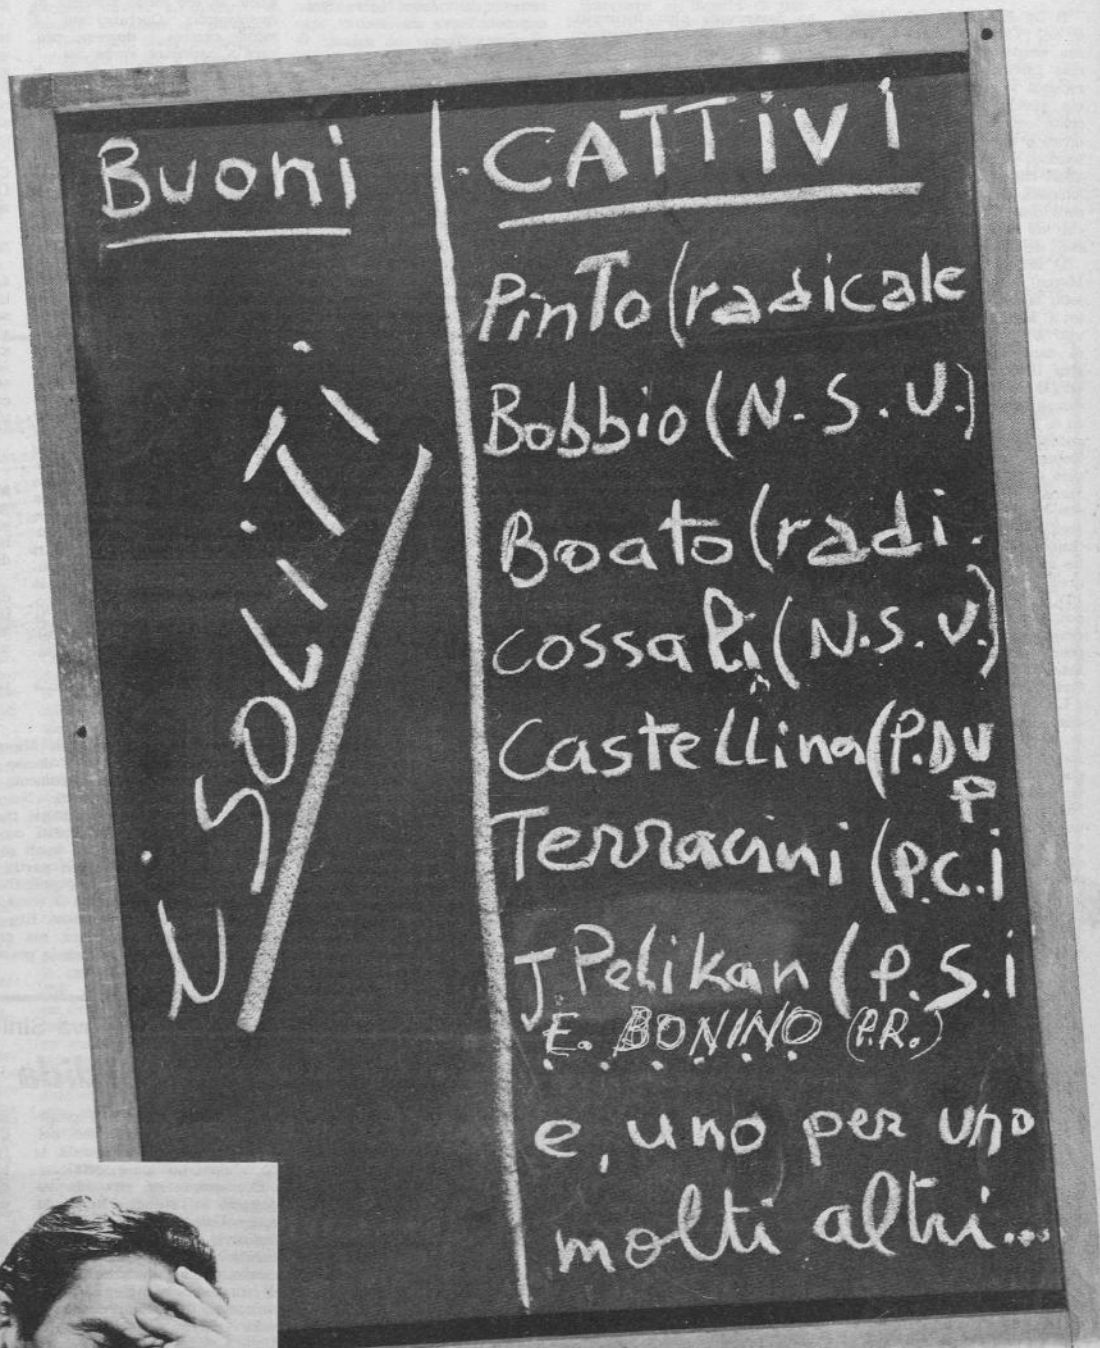 Buoni
i SOLiTi
CATTiVi
PinTo (radicale
Bobbio (N.S.U.)
Boato (radi.
cossali (N.S.U.)
Castellina (P.DU
P
Terracini (P.C.i
J Pelikan (P.S.i
E. BONINO (P.R.)
e, uno per uno
molti altri...